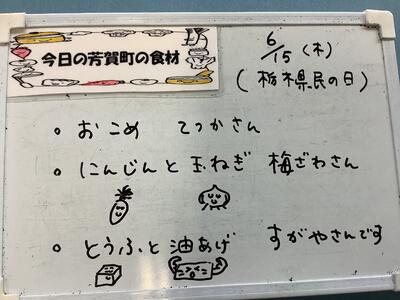 今日の芳賀町の食材
6/15 (木)
(栃木県民の日)
。おこめ てつかさん
。にんじんと玉ねぎ 梅ざわさん
。とうふと油あげ すがやさんです